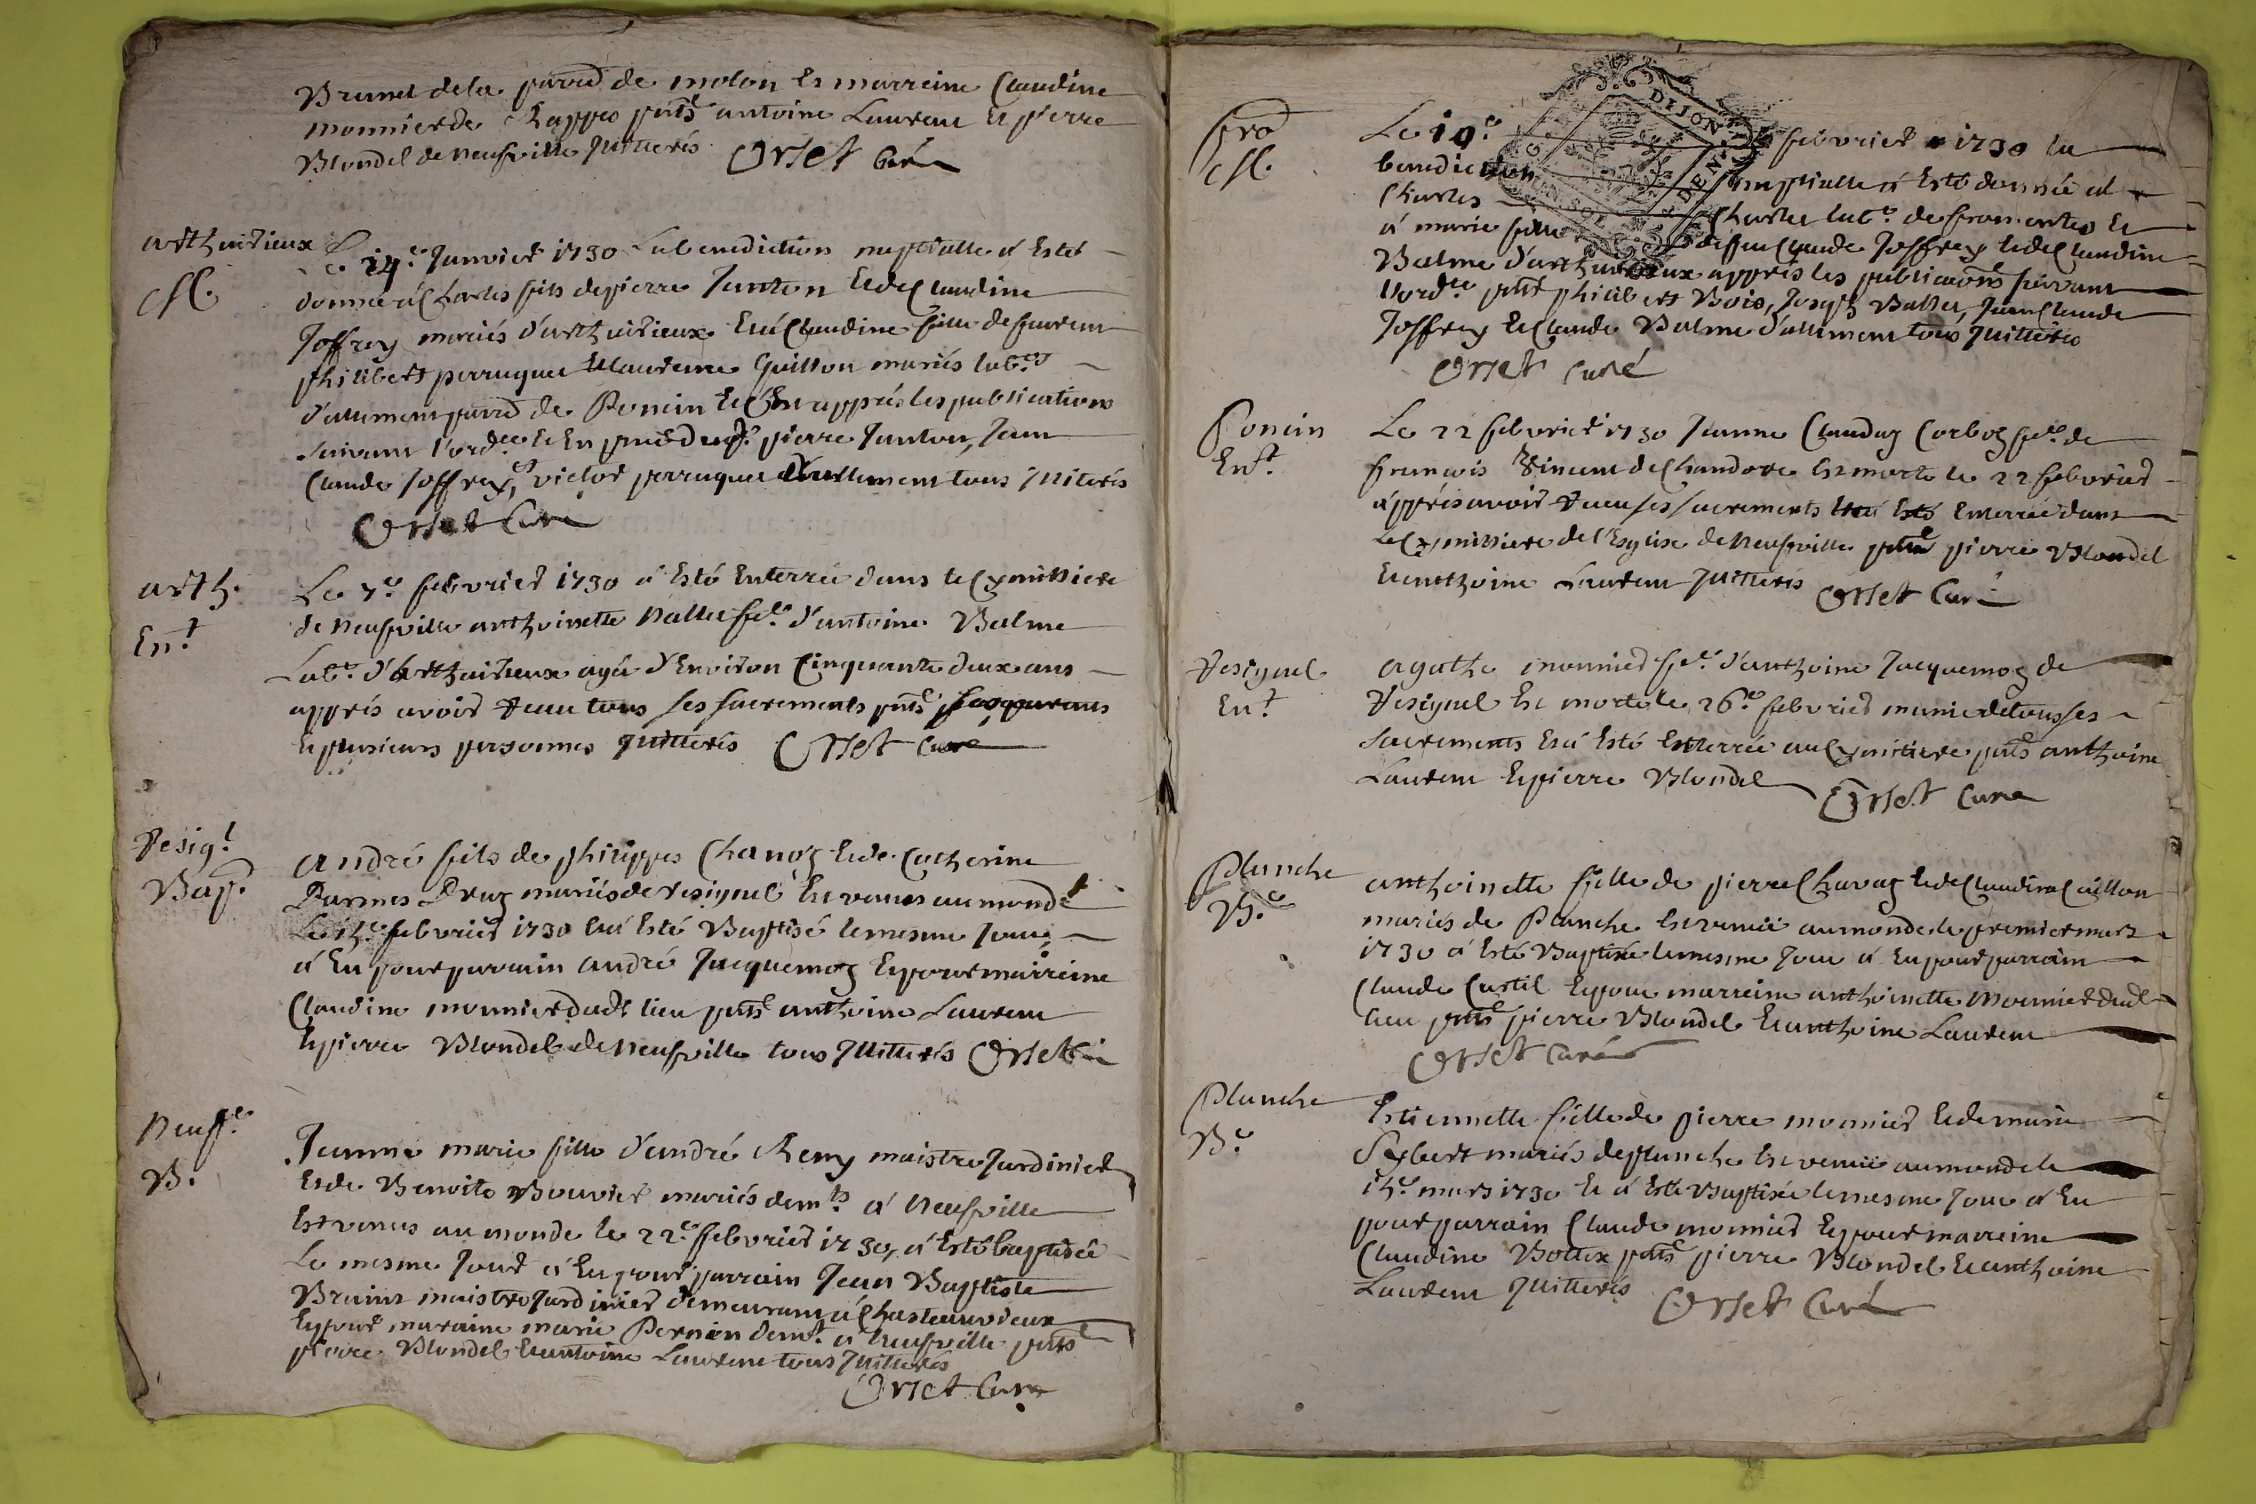 Brunet de la parr. de molon Et marreine Claudine
monnier de Chappes pnts antoine Laurent Et pierre
Blondel de neufville Illiterés Orset Curé
arthurieux
Le 14e Janvier 1730 La benediction nuptialle a Esté
donnée à Charles fils de pierre Janton Et de Claudine
Joffrey mariés d'arthurieux Et à Claudine fille de
philibert perruquet Et Laurence Guillon mariés lab.rs
d'allement parr. de Poncin apprés les publications
suivant l'ord.ce Et En pierre Janton, Jean
Claude Joffrey, victor perruquet d'allement tous Illiterés
Orset Curé
arth.
Ent.
Le 7e febvrier 1730 a Esté Enterrée dans le Cymittiere
de neufville anthoinette Vallet fe. d'antoine Balme
Lab.r d'Arthurieux agé d'Environ Cinquante deux ans
apprés avoir receu tous ses sacrements pnts
Et plusieurs personnes Illiterés Orset Curé
Vesig.l
Bap.
André fils de philippes Chanoz Et de Catherine
Druz mariés de vesignel Est venus au monde
Le febvrier 1730 Et a Esté Baptisé le mesme Jour
a Eu pour parrain André Jacquemoz Et pour marreine
Claudine monnier dudt lieu pnts anthoine Laurent
Et pierre Blondel de neufville tous Illiterés Orset
Neufle
B.
Jeanne marie fille d'andré Remy maistre Jardinier
Et de Benoite Bouvier mariés demts a neufville
Est venus au monde le 22e febvrier 1730, a Esté baptisée
Le mesme Jour a Eu pour parrain Jean Baptiste
maistre Jardinier demeurant a Chasteauvieux
Et pour maraine marie Pernin demt a neufville pnts
pierre Blondel Et antoine Laurent tous Illiterés
Orset Curé
fro
Le 19e febvrier 1730 la
benediction nuptialle a Esté donnée a
Charles Charles lab.r de fromentes Et
DIJON
a marie fille de feu Claude Joffrey Et de Claudine
Balme d'arthurieux apprés les publications suivant
l'ord.ce pnts philibert Bois, Joseph Vallet, Jean Claude
Joffrey Et Claude Balme d'allement tous Illiterés
Orset Curé
Poncin
Ent.
Le 22 febvrier 1730 Jeanne Claudaz Corboz fe. de
francois Vincent de Chandore Est morte le 22 febvrier
apprés avoir receu ses sacrements Esté Enterrée dans
Le Cymittiere de l'Esglise de neufville pnts pierre Blondel
Et anthoine Laurent Illiterés Orset Curé
Vesignel
Ent.
agathe monnier fe. d'anthoine Jacquemoz de
Vesignel Est morte le 26e febvrier munie de tous ses
sacrements Et a Esté Enterrée au Cymitiere pnts anthoine
Laurent Et pierre Blondel Orset Curé
Planche
B.e
anthoinette fille de pierre Chavaz Et de Claudine Caillon
mariés de Planche Est venüe au monde le premier mars
1730 a Esté Baptisée le mesme Jour a Eu pour parrain
Claude Curtil Et pour marreine anthoinette monnier dudt
lieu pnts pierre Blondel Et anthoine Laurent
Orset Curé
Planche
B.e
Estiennette fille de pierre monnier Et de marie
mariés de planche Est venüe au monde le
mars 1730 Et a Esté Baptisée le mesme Jour a Eu
pour parrain Claude monnier Et pour marreine
Claudine Bottex pnts pierre Blondel Et anthoine
Laurent Illiterés Orset Curé